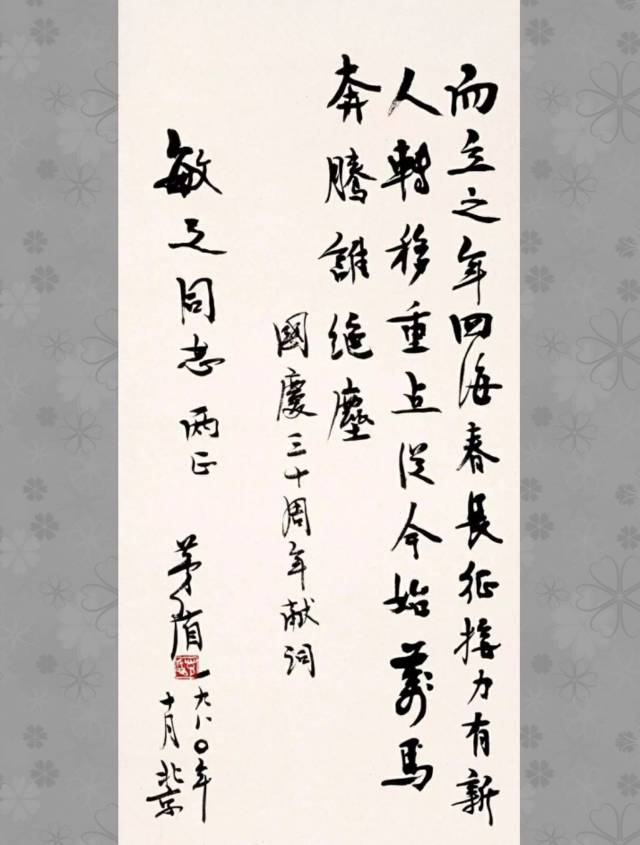 而立之年四海春長征接力有新
人轉移重点従今始萬馬
奔騰誰絶塵
國慶三十周年献詞
敏之同志两正
茅盾
一九八〇年
十月北京